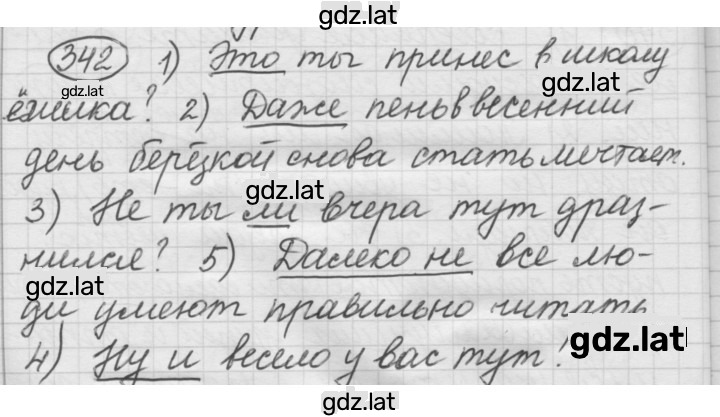 gdz.lat
342 1) Это ты принес в школу
gdz.lat
gdz.lat
ёжика? 2) Даже пень в весенний
день берёзкой снова стать мечтает.
gdz.lat
3) Не ты ли вчера тут драз-
нился? 5) Далеко не все лю-
gdz.lat
ди умеют правильно читать
gdz.lat
4) Ну и весело у вас тут!
gdz.lat